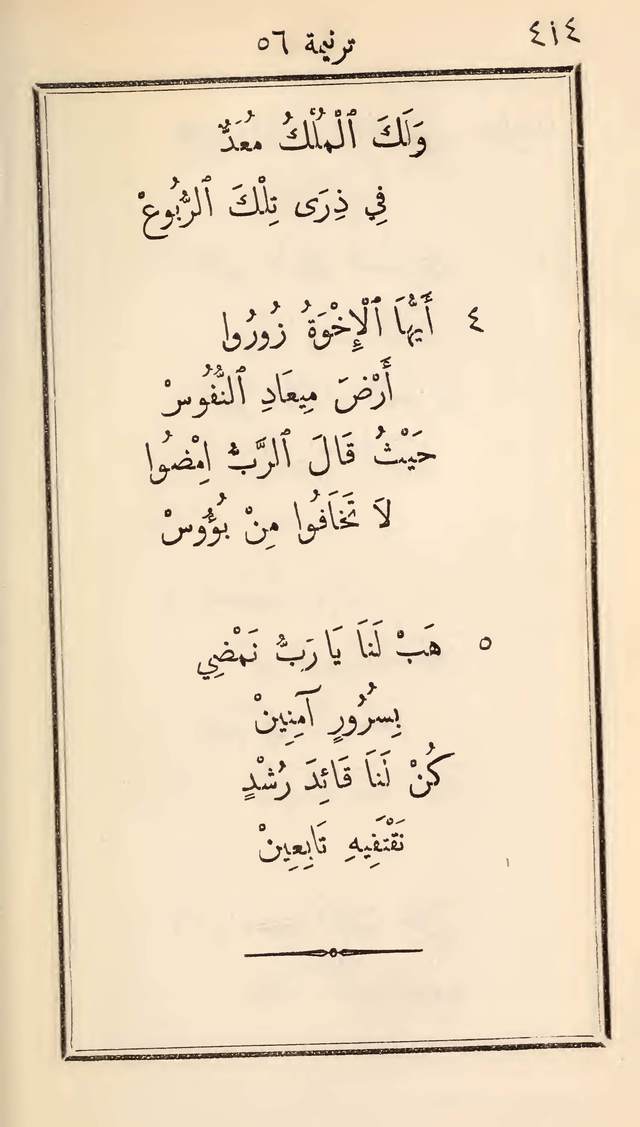 ترنيمة ٥٦ ٤١٤
وَلَكَ ٱلْمُلْكُ مُعَدٌّ
فِي ذِرَى تِلْكَ ٱلرُّبُوعْ
٤ أَيُّهَا ٱلْإِخْوَةُ زُورُوا
أَرْضَ مِيعَادِ ٱلنُّفُوسْ
حَيْثُ قَالَ ٱلرَّبُّ اِمْضُوا
لاَ تَخَافُوا مِنْ بُؤُوسْ
٥ هَبْ لَنَا يَا رَبُّ نَمْضِي
بِسُرُورٍ آمِنِينْ
كُنْ لَنَا قَائِدَ رُشْدٍ
نَقْتَفِيهِ تَابِعِينْ